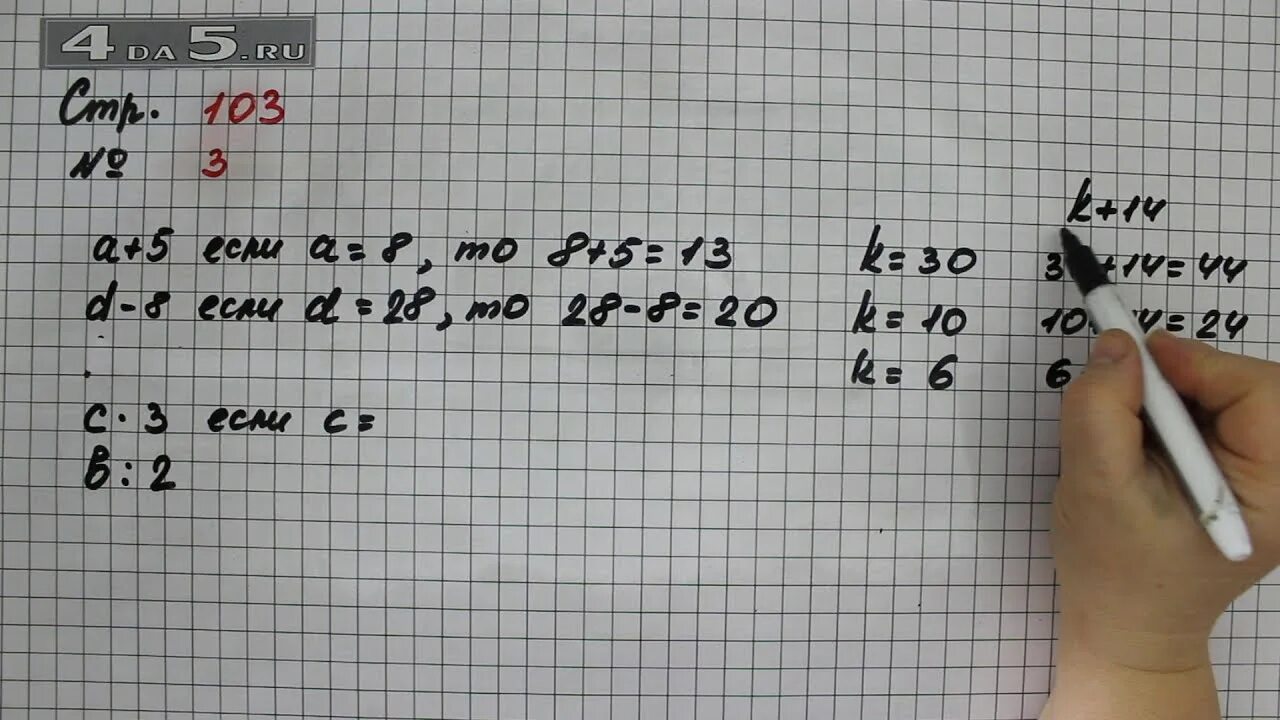 4DA5.RU
Стр. 103
№ 3
a+5 если a=8, то 8+5=13
d-8 если d=28, то 28-8=20
c·3 если c=
в:2
k+14
k=30 3 +14=44
k=10 10 4=24
k=6 6